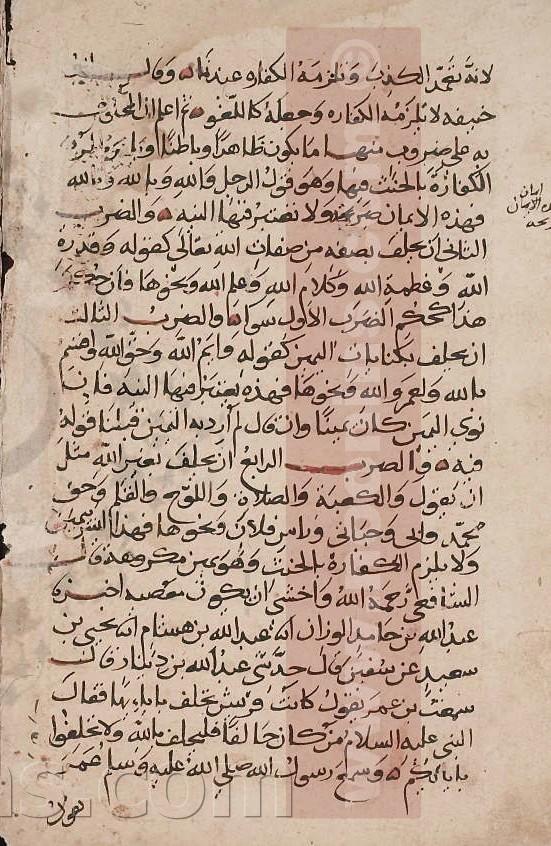 لانه تعمد الكذب وتلزمه الكفاره عندنا وقال ابو
حنيفه لا يلزمه الكفاره وجعله كاللغو ثم اعلم ان المحلوف
به على ضروب منها ما يكون ظاهرا وباطنا ويلزمه
الكفارة بالحنث فيها وهو قول الرجل والله وبالله وتالله
فهذه الايمان صريحة ولا تعتبر فيها النيه والضرب
الثاني ان يحلف بصفه من صفات الله تعالى كقوله وقدرة
الله وعظمة الله وكلام الله وعلم الله ونحوها فان حكم
هذا كحكم الضرب الاول سوا والضرب الثالث
ان يحلف بكنايات اليمين كقوله وايم الله وحق الله واقسم
بالله ولعمرو الله ونحوها فهذه يعتبر فيها النيه فان
نوى اليمين كان يمينا وان قال لم ارد به اليمين قبلنا قوله
فيه والضرب الرابع ان يحلف بغير الله مثل
ان يقول والكعبة والصلاة واللوح والقلم وحق
محمد وابي وحياتي وراس فلان ونحوها فهذا ليس يمين
ولا يلزم الكفارة بالحنث وهو يمين مكروهة قال
الشافعي رحمه الله واخشى ان يكون معصيه اخبرنا
عبد الله بن حامد الوزان انا عبد الله بن هشام انا يحيى بن
سعيد عن سفين قال حدثني عبد الله بن دينار قال
سمعت بن عمر يقول كانت قريش تحلف بابايها فقال
النبي عليه السلام من كان حالفا فليحلف بالله ولا تحلفوا
بابائكم وسمع رسول الله صلى الله عليه وسلم عمر
يقول
ايمان
الايمان